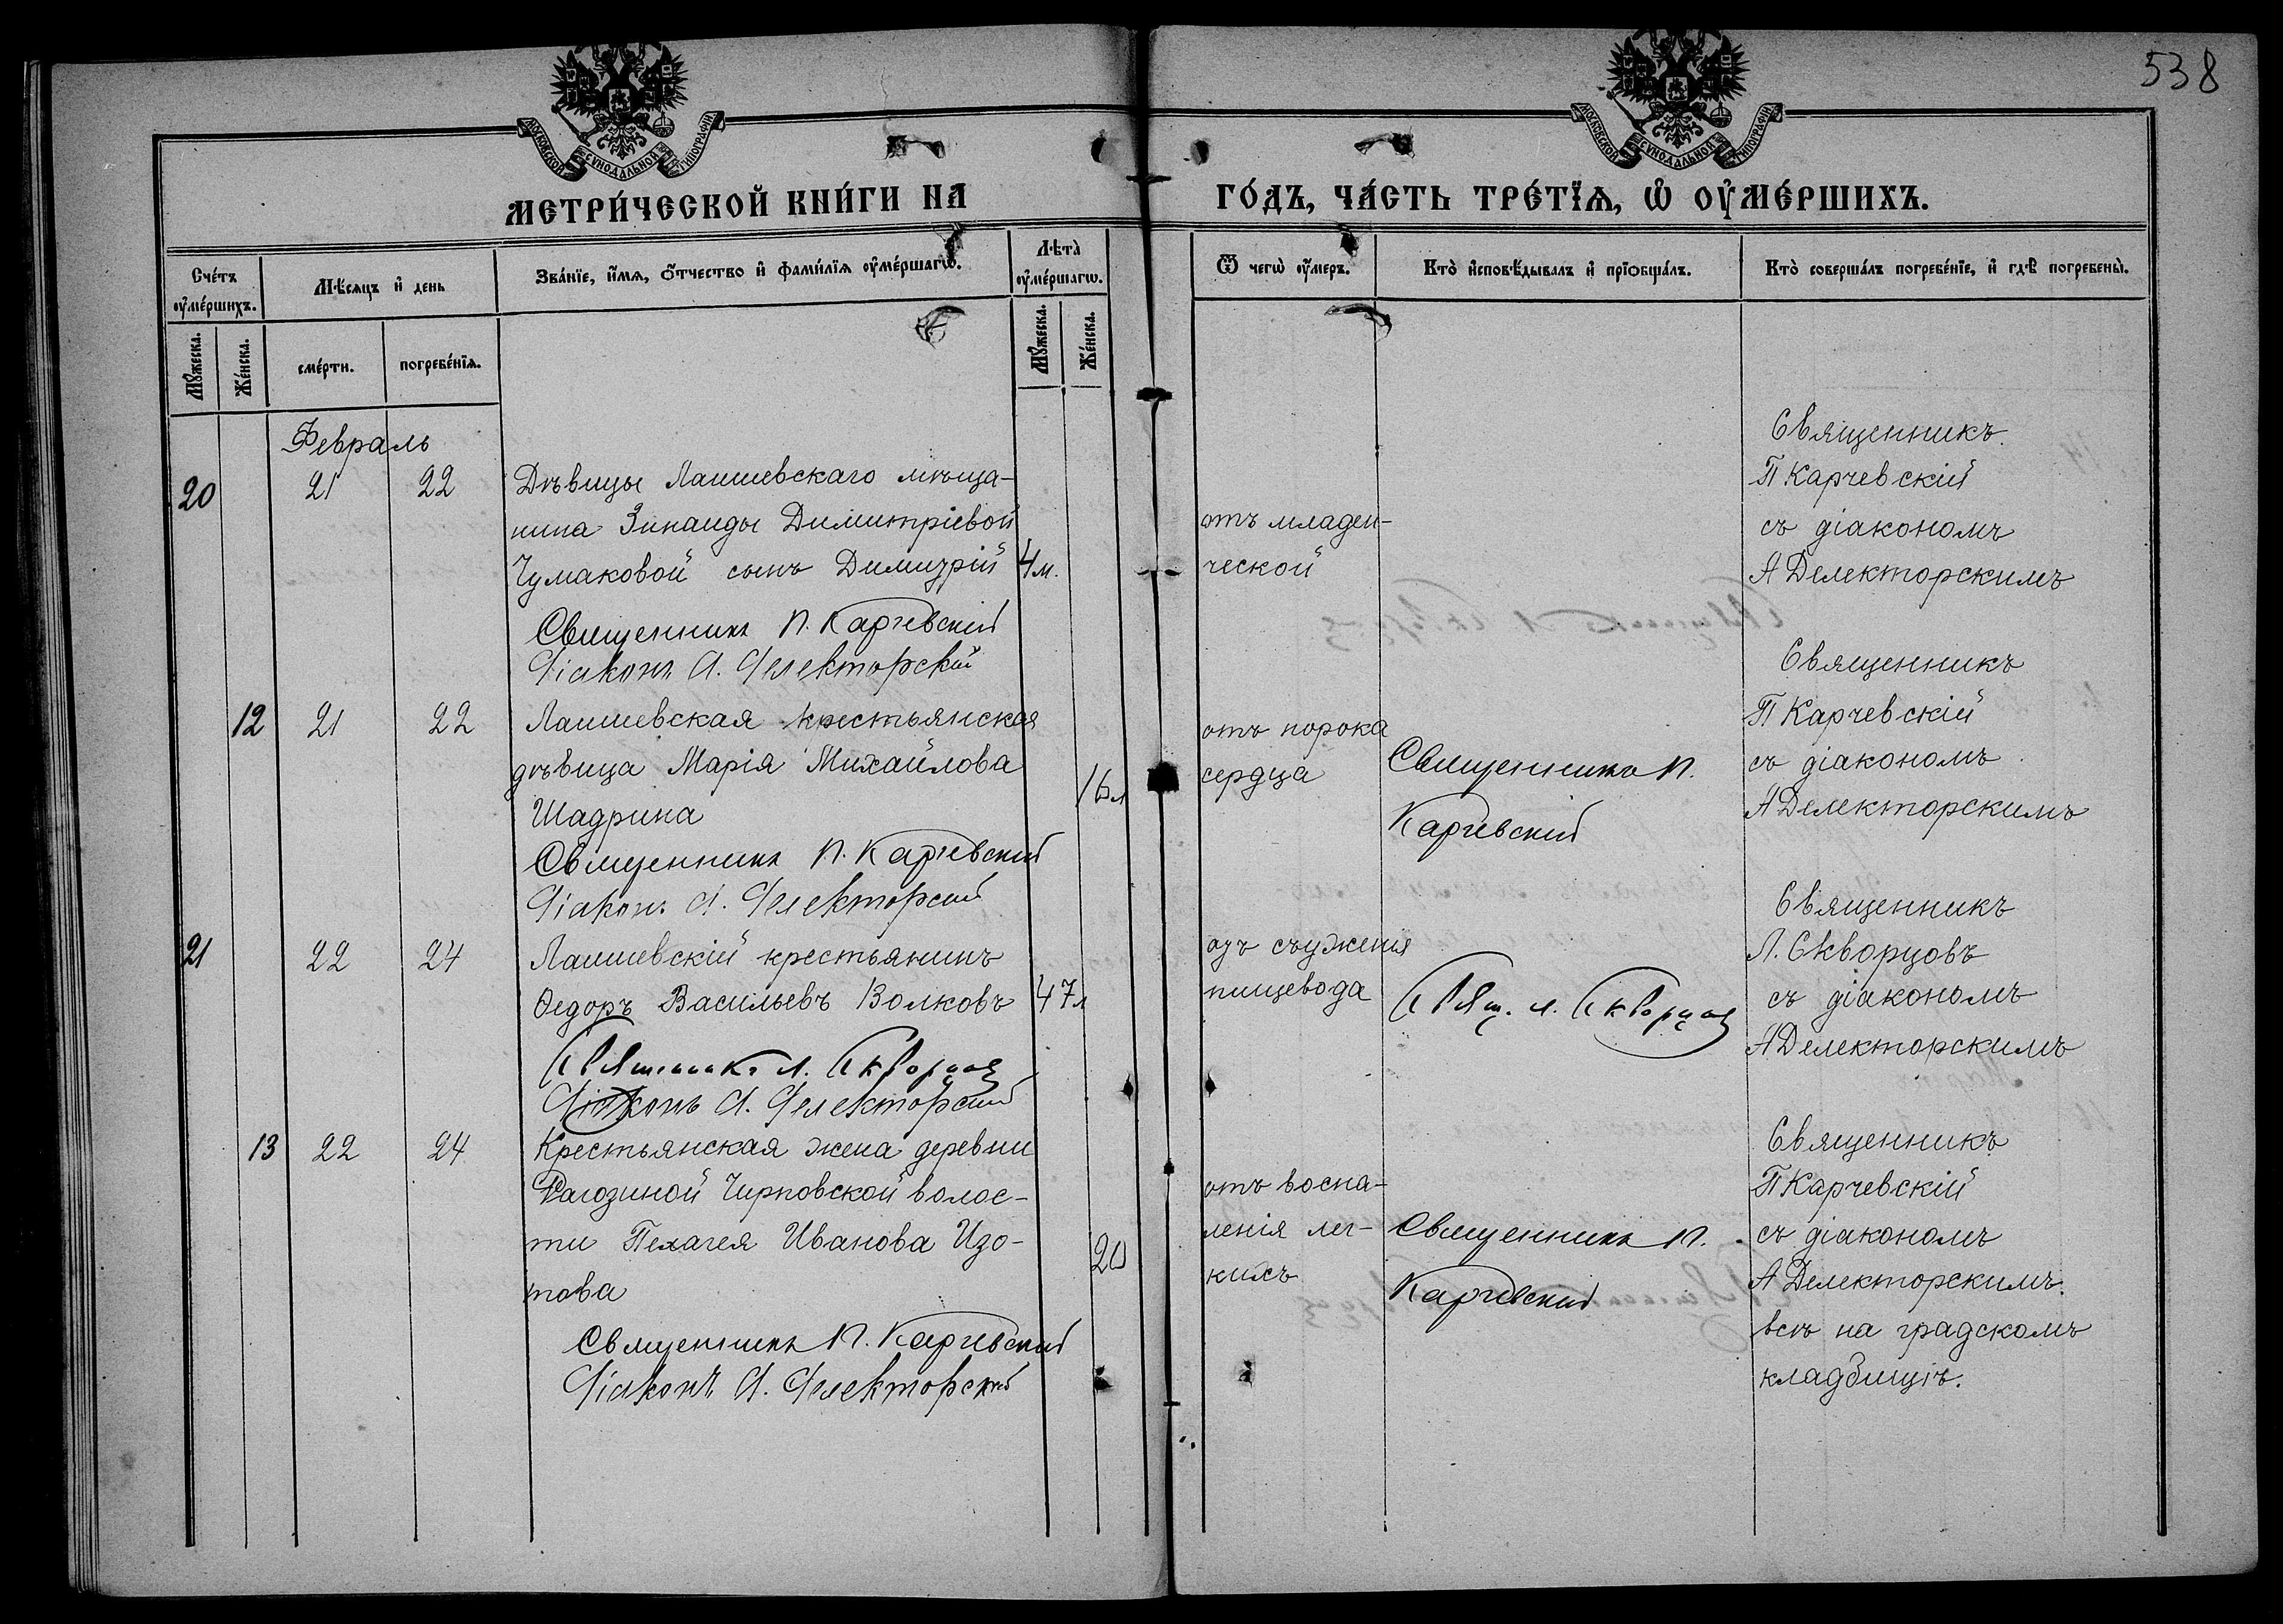 538
МОСКОВСКОЙ СУНОДАЛЬНОЙ ТИПОГРАФІИ
МОСКОВСКОЙ СУНОДАЛЬНОЙ ТИПОГРАФІИ
МЕТРИ́ЧЕСКОЙ КНИ́ГИ НА
ГО́ДЪ, ЧА́СТЬ ТРЕ́ТЇѦ, Ѡ҆ ОУ҆МЕ́РШИХЪ.
Сче́тъ оу҆ме́ршихъ.
Мѣ́сяцъ и҆ день
Зва́нїе, и҆́мя, ѻ҆́тчество и҆ фами́лїя оу҆ме́ршагѡ.
Лѣта̀ оу҆ме́ршагѡ.
Ѿ чегѡ̀ оу҆́меръ.
Кто̀ и҆сповѣ́дывалъ и҆ прїѻбща́лъ.
Кто̀ соверша́лъ погребе́нїе, и҆ гдѣ̀ погребены̀.
Мꙋ́жеска.
Же́нска.
сме́рти.
погребе́нїя.
Мꙋ́жеска.
Же́нска.
Февраль
20 21 22 Дѣвицы Лаишевскаго мѣща-
нина Зинаиды Димитріевой
Чумаковой сынъ Димитрій 4 м.
Священникъ П. Карчевскій
Діаконъ А. Делекторскій
отъ младен-
ческой
Священникъ
П Карчевскій
съ діакономъ
А Делекторскимъ
12 21 22 Лаишевская крестьянская
дѣвица Марія Михайлова
Шадрина
16 л
Священникъ П. Карчевскій
Діаконъ А. Делекторскій
отъ порока
сердца
Священникъ П.
Карчевскій
Священникъ
П Карчевскій
съ діакономъ
А Делекторскимъ
21 22 24 Лаишевскій крестьянинъ
Ѳедоръ Васильевъ Волковъ 47 л
Священникъ Л. Скворцов
Діаконъ А. Делекторскій
отъ съуженія
пищевода
Свящ. Л. Скворцов
Священникъ
Л. Скворцовъ
съ діакономъ
А Делекторскимъ
13 22 24 Крестьянская жена деревни
Рагозиной Чирповской волос-
ти Пелагея Иванова Изо-
това
20
Священникъ П. Карчевскій
Діаконъ А. Делекторскій
отъ воспа-
ленія лег-
кихъ
Священникъ П.
Карчевскій
Священникъ
П Карчевскій
съ діакономъ
А Делекторскимъ.
всѣ на градскомъ
кладбищѣ.